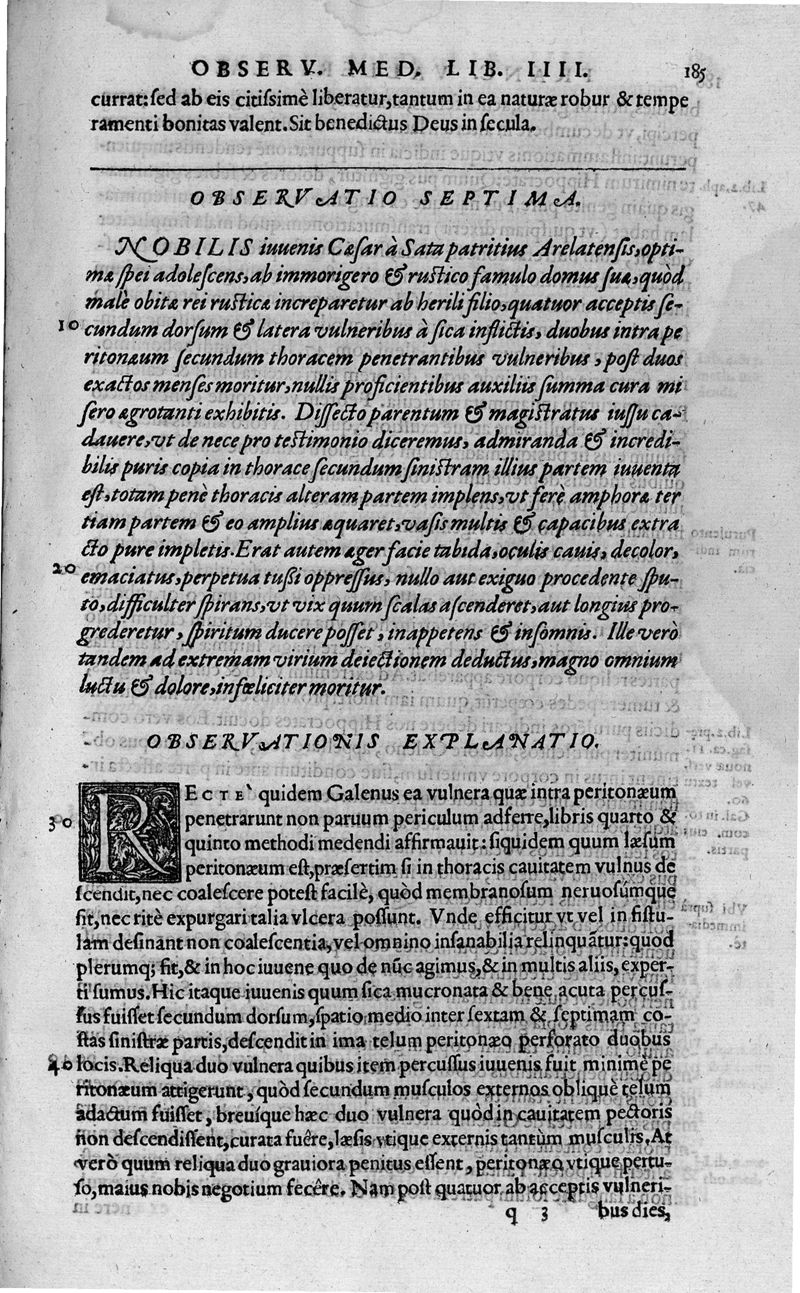 OBSERV. MED. LIB. IIII. 185
currat: sed ab eis citissimè liberatur, tantum in ea naturæ robur & tempe
ramenti bonitas valent. Sit benedictus Deus in secula.
OBSERVATIO SEPTIMA.
NOBILIS iuuenis Cæsar à Sata patritius Arelatensis, opti-
mæ spei adolescens, ab immorigero & rustico famulo domus suæ, quòd
malè obitæ rei rusticæ increparetur ab herili filio, quatuor acceptis se-
10 cundum dorsum & latera vulneribus à sica inflictis, duobus intra pe
ritonæum secundum thoracem penetrantibus vulneribus, post duos
exactos menses moritur, nullis proficientibus auxiliis summa cura mi
sero ægrotanti exhibitis. Dissecto parentum & magistratus iussu ca-
dauere, vt de nece pro testimonio diceremus, admiranda & incredi-
bilis puris copia in thorace secundum sinistram illius partem iuuenta
est, totam penè thoracis alteram partem implens, vt ferè amphoræ ter
tiam partem & eo amplius æquaret, vasis multis & capacibus extra
cto pure impletis. Erat autem æger facie tabida, oculis cauis, decolor,
20 emaciatus, perpetua tussi oppressus, nullo aut exiguo procedente spu-
to, difficulter spirans, vt vix quum scalas ascenderet, aut longius pro-
grederetur, spiritum ducere posset, inappetens & insomnis. Ille verò
tandem ad extremam virium deiectionem deductus, magno omnium
luctu & dolore, infœliciter moritur.
OBSERVATIONIS EXPLANATIO.
RECTE quidem Galenus ea vulnera quæ intra peritonæum
30 penetrarunt non paruum periculum adferre, libris quarto &
quinto methodi medendi affirmauit: siquidem quum læsum
peritonæum est, præsertim si in thoracis cauitatem vulnus de
scendit, nec coalescere potest facilè, quòd membranosum neruosúmque
sit, nec ritè expurgari talia vlcera possunt. Vnde efficitur vt vel in fistu-
lam desinant non coalescentia, vel omnino insanabilia relinquãtur: quod
plerumq; fit, & in hoc iuuene quo de nũc agimus, & in multis aliis, exper-
ti sumus. Hic itaque iuuenis quum sica mucronata & bene acuta percus-
sus fuisset secundum dorsum, spatio medio inter sextam & septimam co-
stas sinistræ partis, descendit in ima telum peritonæo perforato duobus
40 locis. Reliqua duo vulnera quibus item percussus iuuenis fuit minimè pe
ritonæum attigerunt, quòd secundum musculos externos obliquè telum
adactum fuisset, breuíque hæc duo vulnera quòd in cauitatem pectoris
non descendissent, curata fuêre, læsis vtique externis tantùm musculis. At
verò quum reliqua duo grauiora penitus essent, peritonæo vtique pertu-
so, maius nobis negotium fecêre. Nam post quatuor ab acceptis vulneri-
q 3 bus dies,